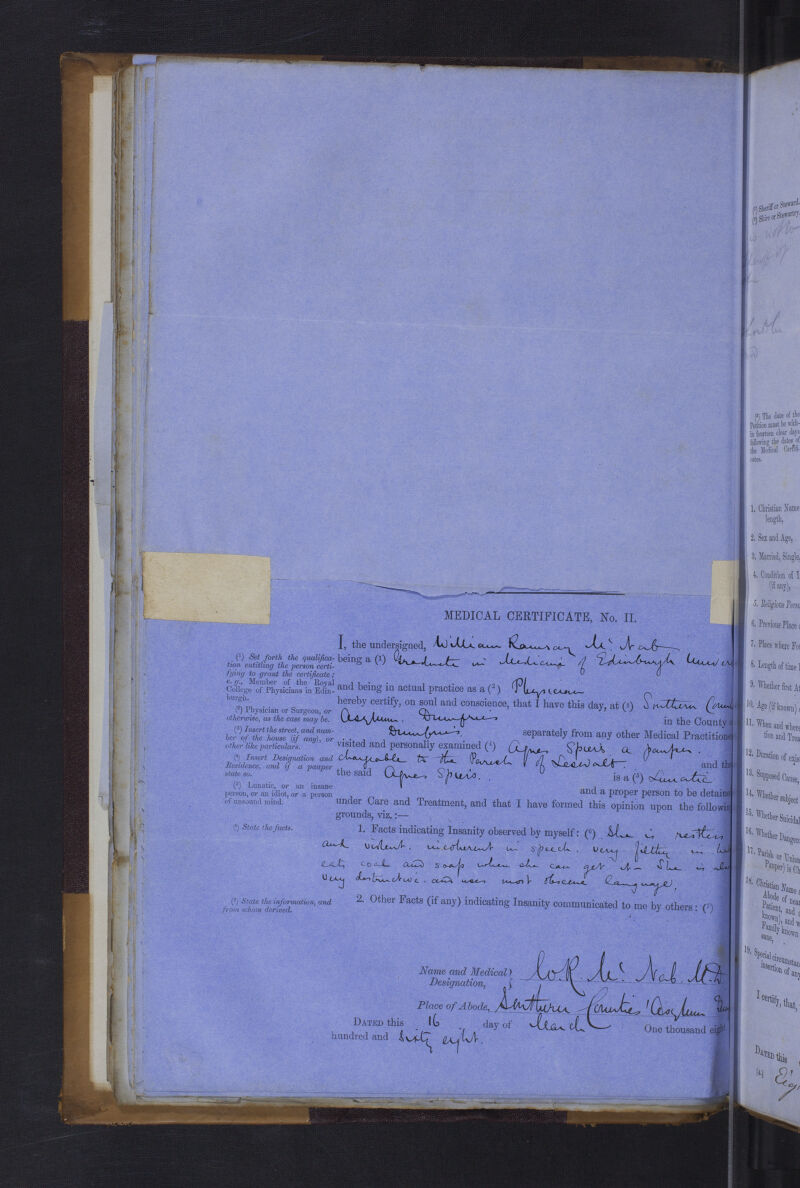 MEDICAL CERTIFICATE, No. II.
I, the undersigned, William Ramsay Mc Nab
being a (1) Graduate in Medicine of Edinburgh
and being in actual practice as a (2) Physician
hereby certify, on soul and conscience, that I have this day, at (3) Southern
Asylum. Dumfries in the County
Dumfries separately from any other Medical Practitioner
visited and personally examined (4) Agnes Speirs a pauper.
chargeable to the Parish of Leswalt. and
the said Agnes Speirs. is a (5) Lunatic
and a proper person to be
under Care and Treatment, and that I have formed this opinion upon the
grounds, viz.:—
1. Facts indicating Insanity observed by myself: (6) She is restless
and violent. incoherent in speech. very filthy in
eats coal and soap when she can get it - She is
very destructive. and uses most obscene language.
2. Other Facts (if any) indicating Insanity communicated to me by others: (7)
Name and Medical
Designation, W.R. Mc Nab. M.D
Place of Abode, Southern Counties' Asylum
DATED this 16 day of March One thousand
hundred and Sixty eight.
(1) Set forth the qualifica-
tion entitling the person certi-
fying to grant the certificate;
e. g., Member of the Royal
College of Physicians in Edin-
burgh.
(2) Physician or Surgeon, or
otherwise, as the case may be.
(3) Insert the street, and num-
ber of the house (if any), or
other like particulars.
(4) Insert Designation and
Residence, and if a pauper
state so.
(5) Lunatic, or an insane
person, or an idiot, or a person
of unsound mind.
(6) State the facts.
(7) State the information, and
from whom derived.
(1) Sheriff or Steward.
(2) Shire or Stewartry.
(3) The date of the
Petition must be with-
in fourteen clear days
following the dates of
the Medical Certifi-
cates.
1. Christian Name
length,
2. Sex and Age,
3. Married, Single,
4. Condition of
(if any),
5. Religious
6. Previous Place
7. Place where
8. Length of time
9. Whether first
10. Age (if known)
11. When and where
tion and
12. Duration of
13. Supposed Cause,
14. Whether subject
15. Whether Suicidal
16. Whether
17. Parish or
Pauper) is
18. Christian Name
Abode of
Patient, and
known), and
Family known
sane,
19. Special
insertion of
I certify, that,
DATED this